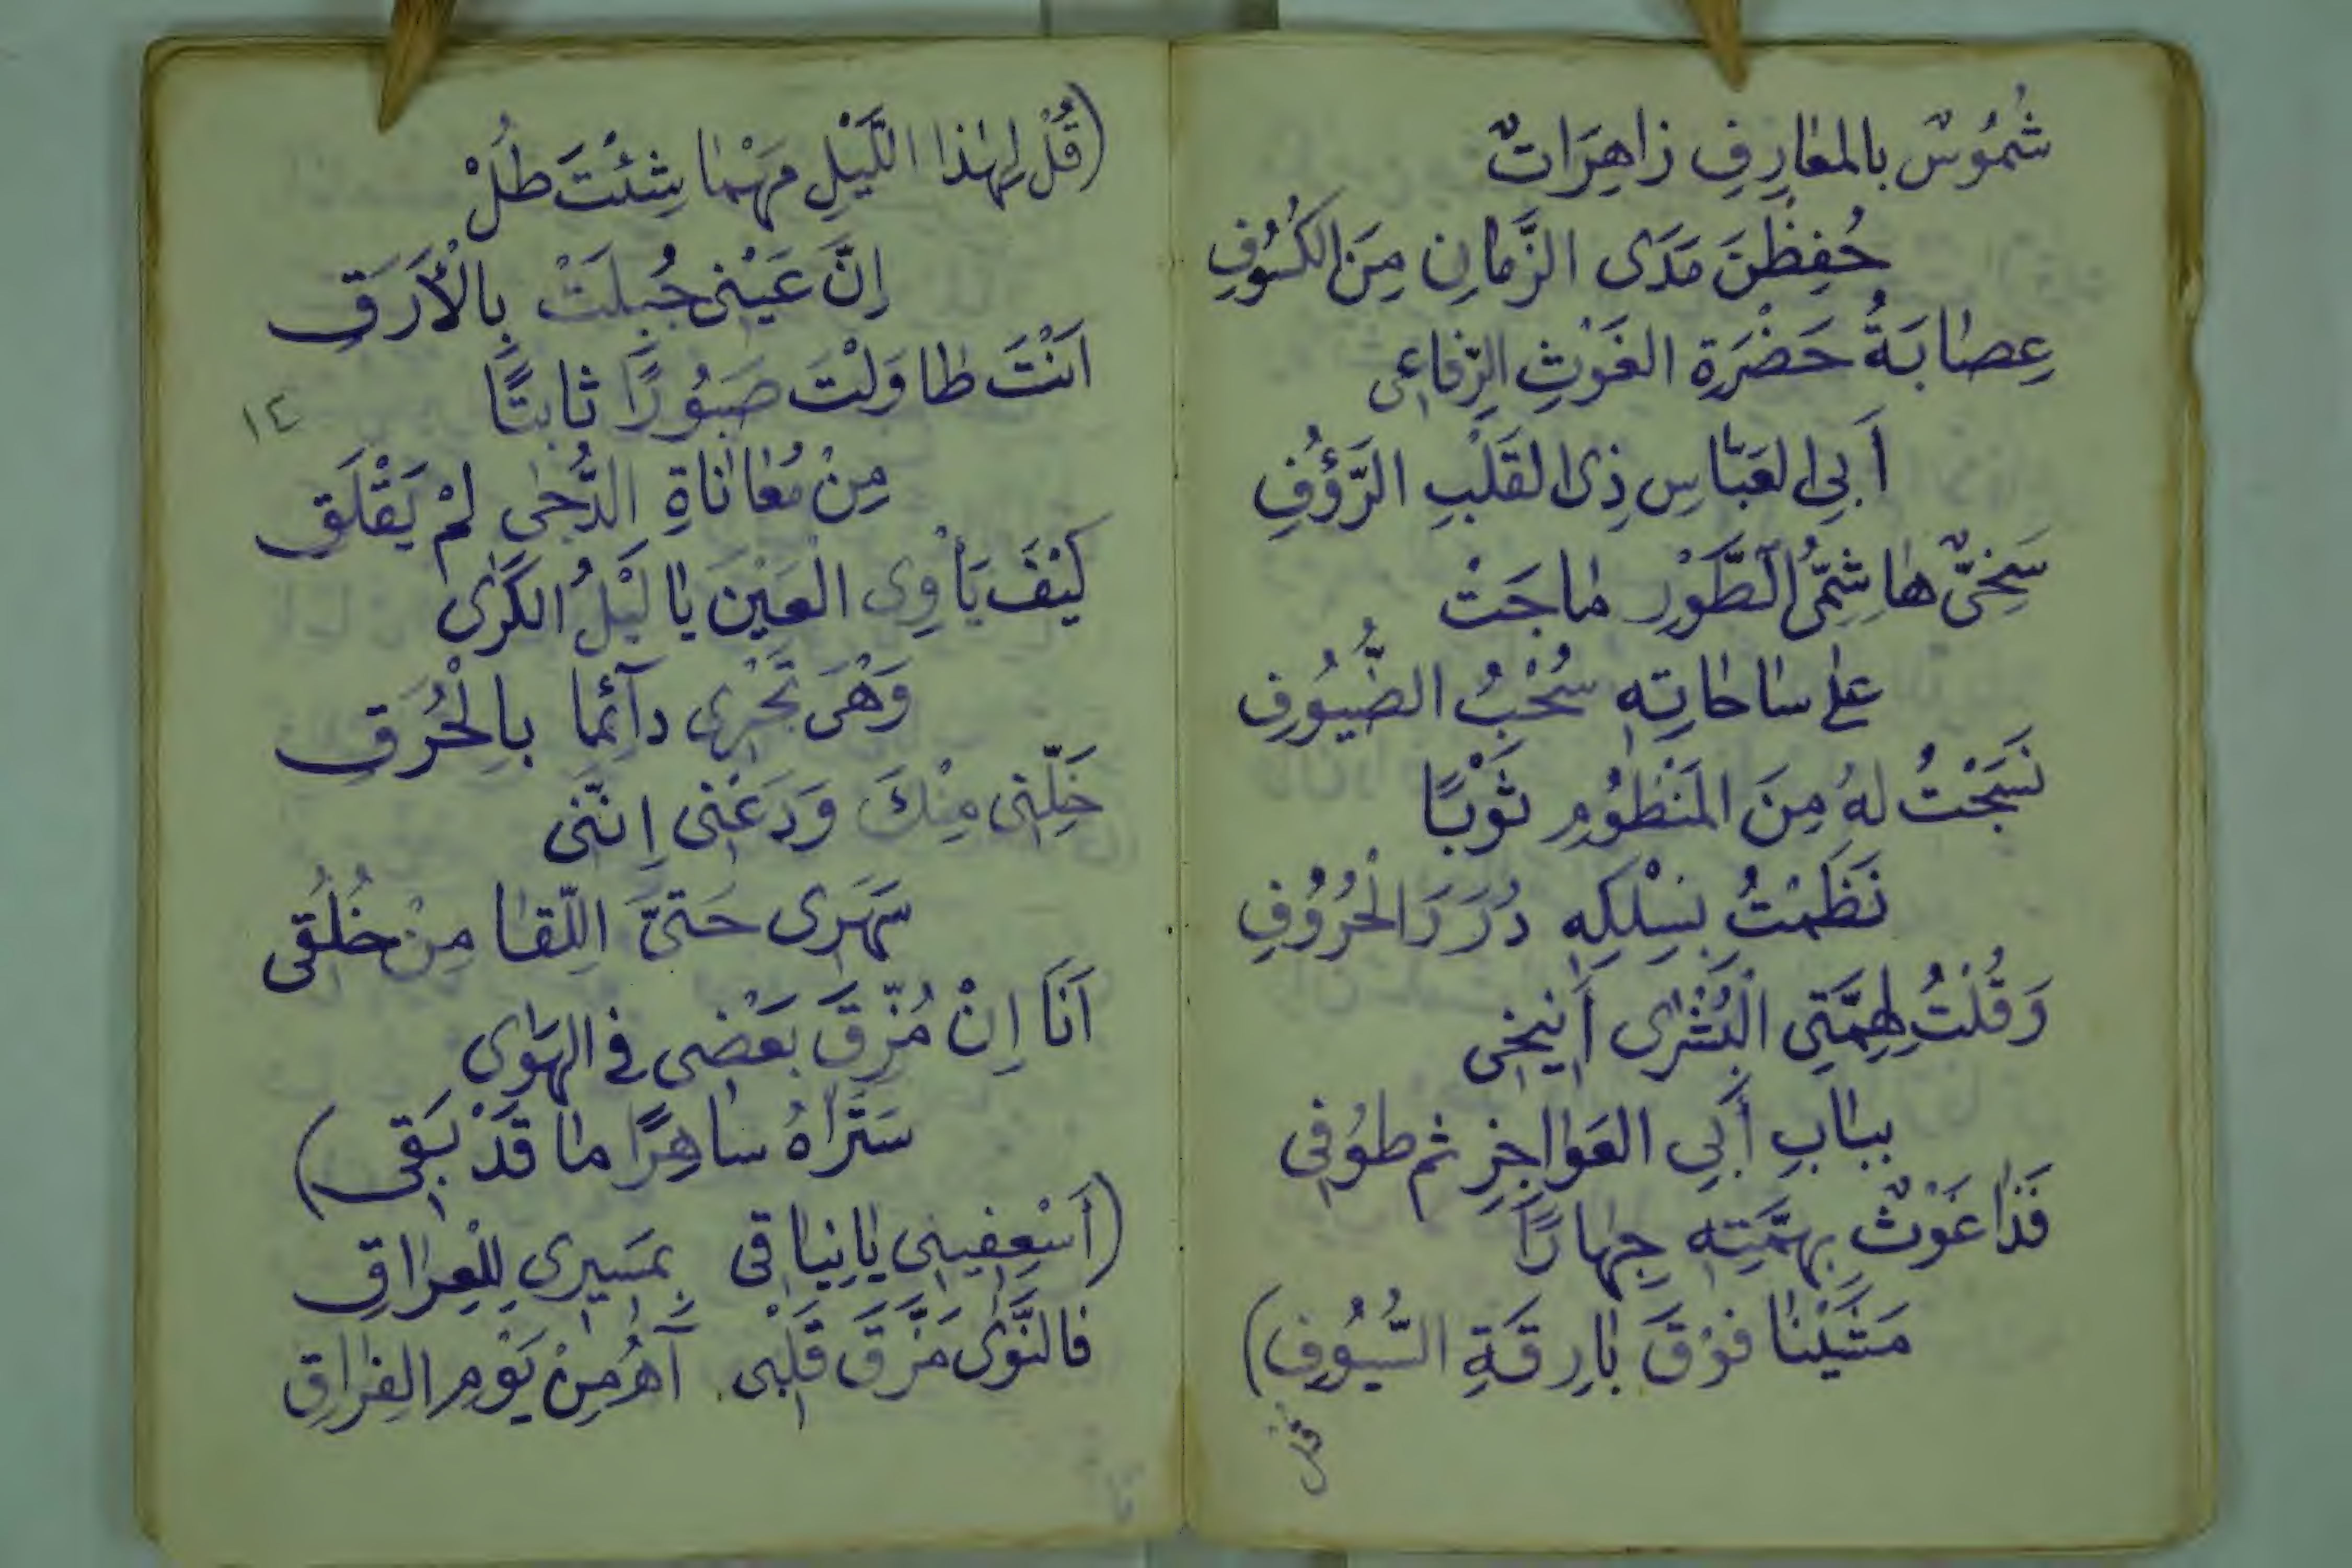 شُمُوسٌ بالمعَارِفِ زاهِرَاتٌ
حُفِظْنَ مَدَى الزَّمانِ مِنَ الكُسُوفِ
عِصَابَةُ حَضْرَةِ الغَوْثِ الرِّفاعِى
أَبِى العَبَّاسِ ذِى القَلْبِ الرَّؤُفِ
سَخِىٌّ هَاشِمِىُّ الطَّوْرِ مَاجَتْ
عَلى سَاحَاتِهِ سُحْبُ الضُّيُوفِ
نَسَجْتُ لهُ مِنَ المَنْظُومِ ثَوْبًا
نَظَمْتُ بِسِلْكِهِ دُرَرَ الْحُرُوفِ
وَقُلْتُ لِهِمَّتِى الْبُشْرَى أَنِيخِى
بِبَابِ أَبِى العَوَاجِزِ ثم طُوفِى
فَذَا غَوْثٌ بِهِمَّتِهِ جِهَارًا
مَشَيْنَا فَوْقَ بَارِقَةِ السُّيُوفِ)
قل
(قُلْ لِهٰذا اللَّيْلِ مَهْمَا شِئْتَ طُلْ
اِنَّ عَيْنِى جُبِلَتْ بِالْأَرَقِ
اَنْتَ طَاوَلْتَ صَبُورًا ثابتًا
مِنْ مُعَانَاةِ الدُّجَى لَمْ يَقْلَقِ
كَيْفَ يَأْوِى الْعَيْنَ يَا لَيْلُ الكَرَى
وَهْىَ تَجْرِى دآئما بِالْحُرَقِ
خَلِّنِى مِنْكَ وَدَعْنِى اِنَّنِى
سَهَرِى حَتىَّ اللِّقَا مِنْ خُلُقِى
اَنَا اِنْ مُزِّقَ بَعْضِى فى الهَوَى
سَتَرَاهُ سَاهِرًا مَا قَدْ بَقِى)
١٤
(أَسْعِفِينِى يَا نِيَاقِى بِمَسِيرِى لِلْعِرَاقِ
فالنَّوَى مَزَّقَ قَلْبِى آهُ مِنْ يَوْمِ الفِرَاقِ